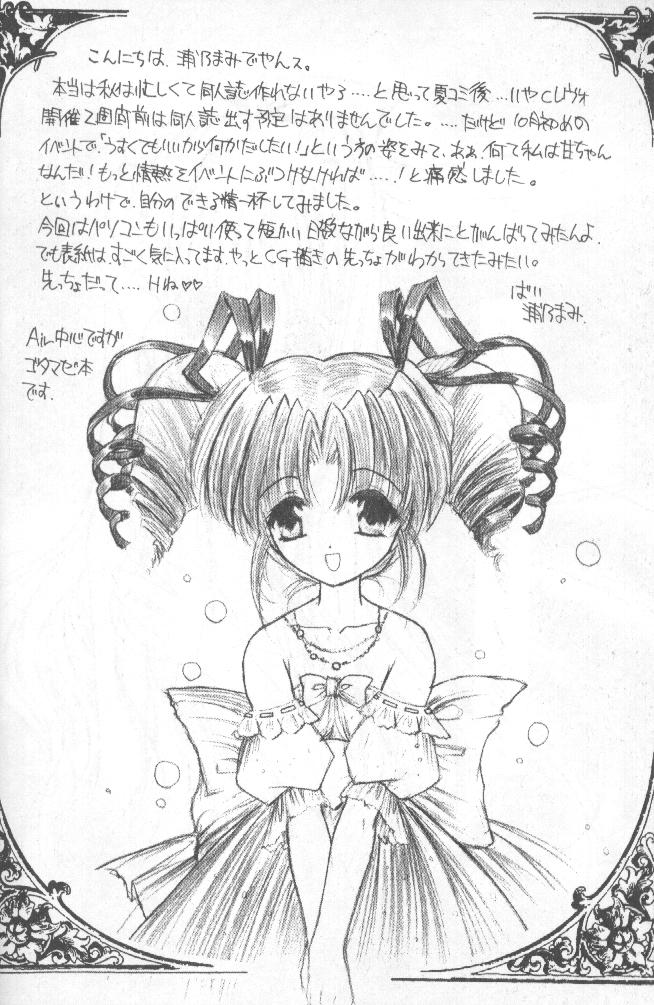 こんにちは、浦乃まみでやんス。
本当は私は忙しくて同人誌作れないやろ‥‥と思って夏コミ後‥‥いやCレヴォ
開催2週間前は同人誌出す予定はありませんでした。‥‥だけど10月初めの
イベントで、「うすくてもいいから何かだしたい!」という方の姿をみて、ああ、何て私は甘ちゃん
なんだ!もっと情熱をイベントにぶつけなければ‥‥!と痛感しました。
というわけで、自分のできる精一杯してみました。
今回はパソコンもいっぱい使って短かい日数ながら良い出来にとがんばってみたんよ。
でも表紙は、すごく気に入ってます。やっとCG描きの先っちょがわかってきたみたい。
先っちょだって‥‥Hね♡♡
ばい
浦乃まみ.
Air中心ですが
ゴタマゼ本
です.